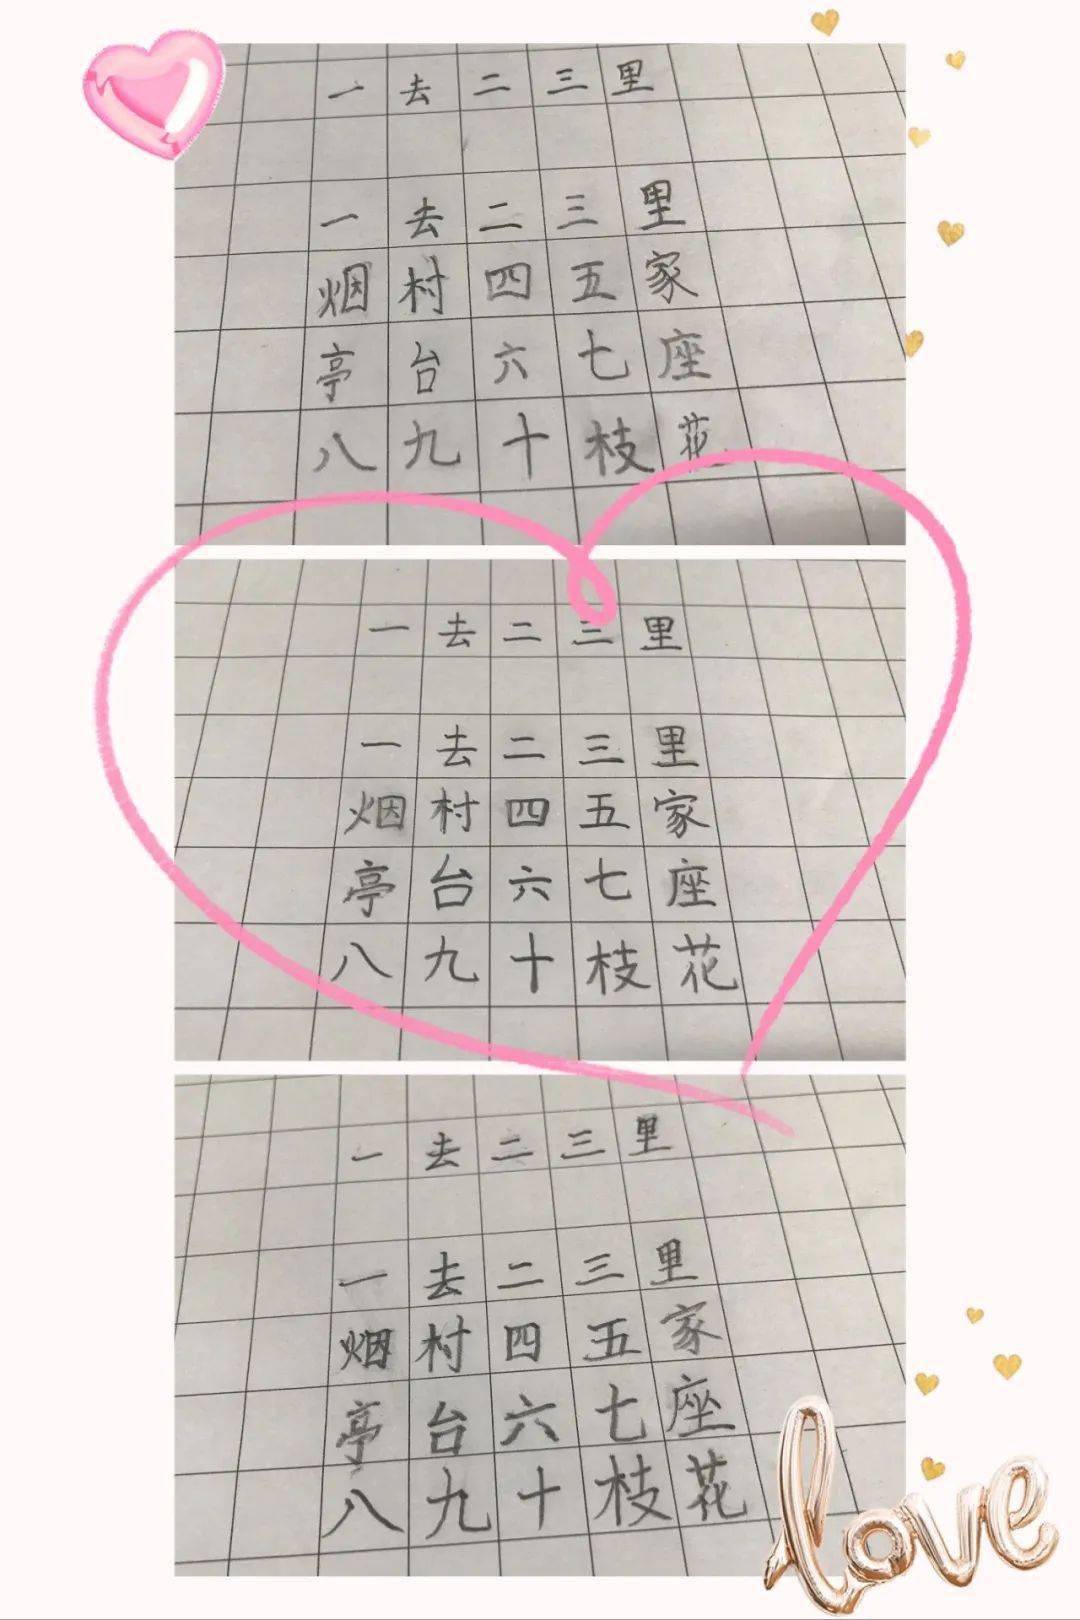 一去二三里
一去二三里
烟村四五家
亭台六七座
八九十枝花
一去二三里
一去二三里
烟村四五家
亭台六七座
八九十枝花
一去二三里
一去二三里
烟村四五家
亭台六七座
八九十枝花
love